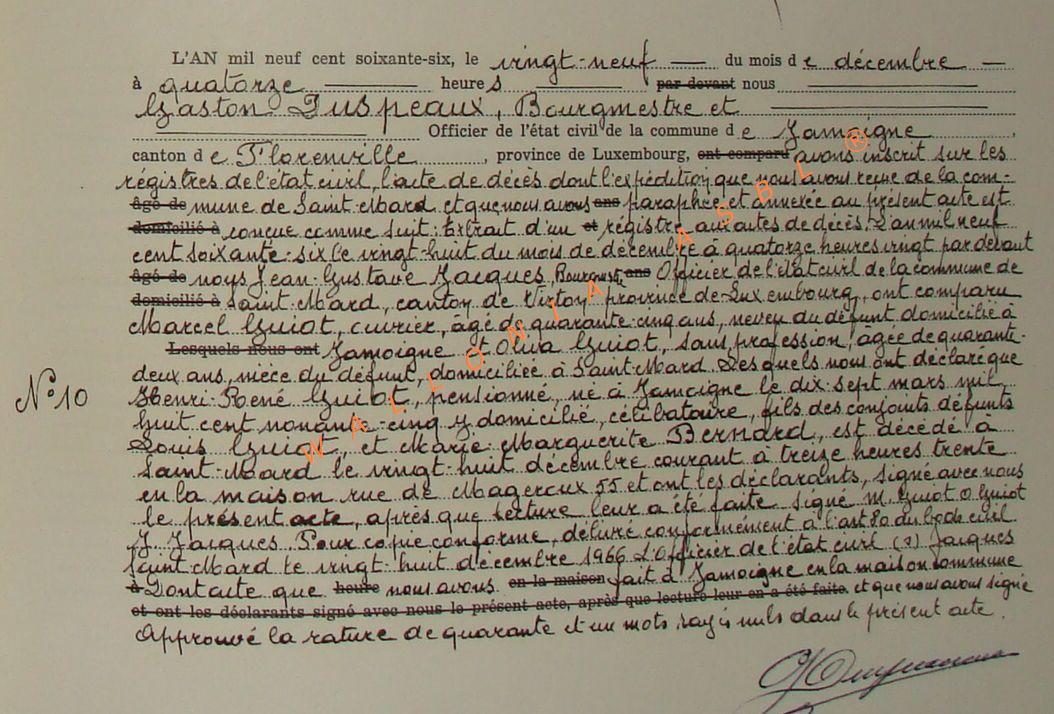 L'AN mil neuf cent soixante-six, le vingt-neuf — du mois de décembre —
à quatorze — heures — , par devant nous
Gaston Duspeaux, Bourgmestre et
Officier de l'état civil de la commune de Jamoigne ,
canton de Florenville , province de Luxembourg, ont comparu avons inscrit sur les
régistres de l'état civil, l'acte de décès dont l'expédition que nous avons reçue de la com-
âgé de mune de Saint-Mard et que nous avons ans paraphée et annexée au présent acte est
domicilié à conçue comme suit: Extrait d'un et régistre aux actes de décès. L'an mil neuf
cent soixante-six le vingt-huit du mois de décembre à quatorze heures vingt par devant
âgé de nous Jean-Gustave Jacques, Bourgmestre, ans Officier de l'état civil de la commune de
domicilié à Saint-Mard, canton de Virton province de Luxembourg, ont comparu
Marcel Guiot, ouvrier, âgé de quarante-cinq ans, neveu du défunt domicilié à
Lesquels nous ont Jamoigne et Oliva Guiot, sans profession, âgée de quarante-
deux ans, nièce du défunt, domiciliée à Saint-Mard Lesquels nous ont déclaré que
N° 10
Henri-René Guiot, pensionné, né à Jamoigne le dix-sept mars mil
huit cent nonante-cinq y domicilié, célibataire, fils des conjoints défunts
Louis Guiot, et Marie-Marguerite Bernard, est décédé à
Saint-Mard le vingt-huit décembre courant à treize heures trente
en la maison rue de Mageroux 55 et ont les déclarants, signé avec nous
le présent acte, après que lecture leur a été faite. signé M. Guiot O Guiot
J. Jacques. Pour copie conforme, délivré conformément à l'art 80 du Code civil
Saint-Mard le vingt-huit décembre 1966 L'Officier de l'état civil (s) Jacques
à Dont acte que heure nous avons en la maison fait à Jamoigne en la maison commune
et ont les déclarants signé avec nous le présent acte, après que lecture leur en a été faite. et que nous avons signé
Approuvé la rature de quarante et un mots rayés nuls dans le présent acte.
WALLONIA ASBL ®